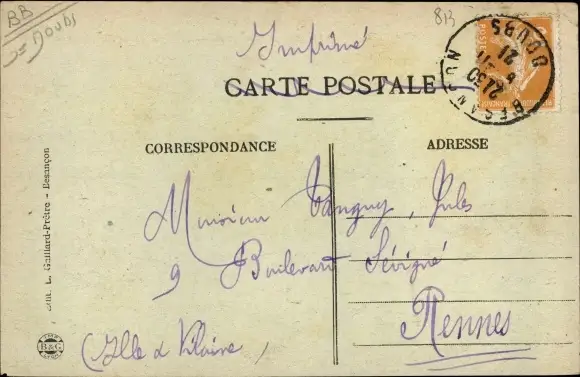 BB
25 DOUBS
813
Imprimé
CARTE POSTALE
BESANÇON DOUBS
21
CORRESPONDANCE
ADRESSE
Monsieur Tanguy, Jules
9 Boulevard Sévigné
Rennes
(Ille & Vilaine)
Edit. L. Gaillard-Prêtre — Besançon
B&G